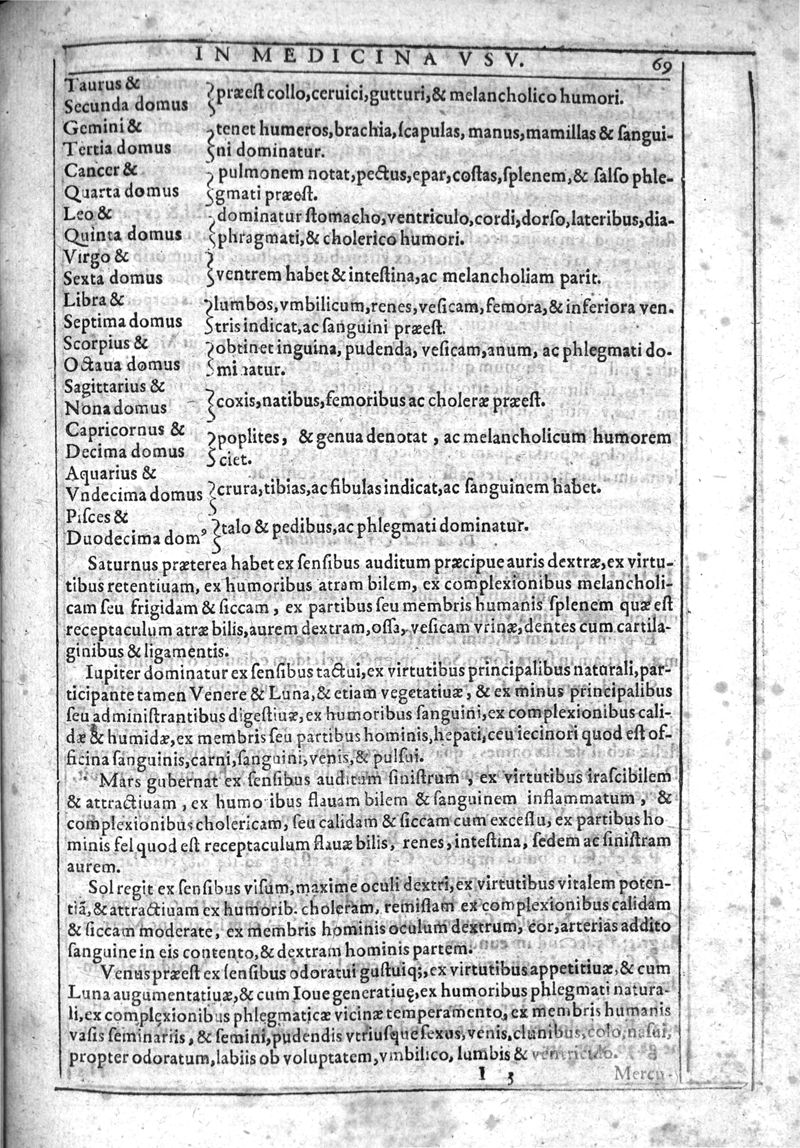 IN MEDICINA VSV. 69
Taurus &
Secunda domus
præest collo, ceruici, gutturi, & melancholico humori.
Gemini &
Tertia domus
tenet humeros, brachia, scapulas, manus, mamillas & sangui-
ni dominatur.
Cancer &
Quarta domus
pulmonem notat, pectus, epar, costas, splenem, & salso phle-
gmati præest.
Leo &
Quinta domus
dominatur stomacho, ventriculo, cordi, dorso, lateribus, dia-
phragmati, & cholerico humori.
Virgo &
Sexta domus
ventrem habet & intestina, ac melancholiam parit.
Libra &
Septima domus
lumbos, vmbilicum, renes, vesicam, femora, & inferiora ven-
tris indicat, ac sanguini præest.
Scorpius &
Octaua domus
obtinet inguina, pudenda, vesicam, anum, ac phlegmati do-
minatur.
Sagittarius &
Nona domus
coxis, natibus, femoribus ac choleræ præest.
Capricornus &
Decima domus
poplites, & genua denotat, ac melancholicum humorem
ciet.
Aquarius &
Vndecima domus
crura, tibias, ac fibulas indicat, ac sanguinem habet.
Pisces &
Duodecima domꝰ
talo & pedibus, ac phlegmati dominatur.
Saturnus præterea habet ex sensibus auditum præcipue auris dextræ, ex virtu-
tibus retentiuam, ex humoribus atram bilem, ex complexionibus melancholi-
cam seu frigidam & siccam, ex partibus seu membris humanis splenem quæ est
receptaculum atræ bilis, aurem dextram, ossa, vesicam vrinæ, dentes cum cartila-
ginibus & ligamentis.
Iupiter dominatur ex sensibus tactui, ex virtutibus principalibus naturali, par-
ticipante tamen Venere & Luna, & etiam vegetatiuæ, & ex minus principalibus
seu administrantibus digestiuæ, ex humoribus sanguini, ex complexionibus cali-
dæ & humidæ, ex membris seu partibus hominis, hepati, ceu iecinori quod est of-
ficina sanguinis, carni, sanguini, venis, & pulsui.
Mars gubernat ex sensibus auditum sinistrum, ex virtutibus irascibilem
& attractiuam, ex humo ibus flauam bilem & sanguinem inflammatum, &
complexionibus cholericam, seu calidam & siccam cum excessu, ex partibus ho
minis fel quod est receptaculum flauæ bilis, renes, intestina, sedem ac sinistram
aurem.
Sol regit ex sensibus visum, maxime oculi dextri, ex virtutibus vitalem poten-
tiã, & attractiuam ex humorib. choleram, remissam ex complexionibus calidam
& siccam moderate, ex membris hominis oculum dextrum, cor, arterias addito
sanguine in eis contento, & dextram hominis partem.
Venus præest ex sensibus odoratui gustuiq;, ex virtutibus appetitiuæ, & cum
Luna augumentatiuæ, & cum Ioue generatiuę, ex humoribus phlegmati natura-
li, ex complexionibus phlegmaticæ vicinæ temperamento, ex membris humanis
vasis seminariis, & semini, pudendis vtriusque sexus, venis, clunibus, colo, nasui,
propter odoratum, labiis ob voluptatem, vmbilico, lumbis & ventriculo.
I 3 Mercu-